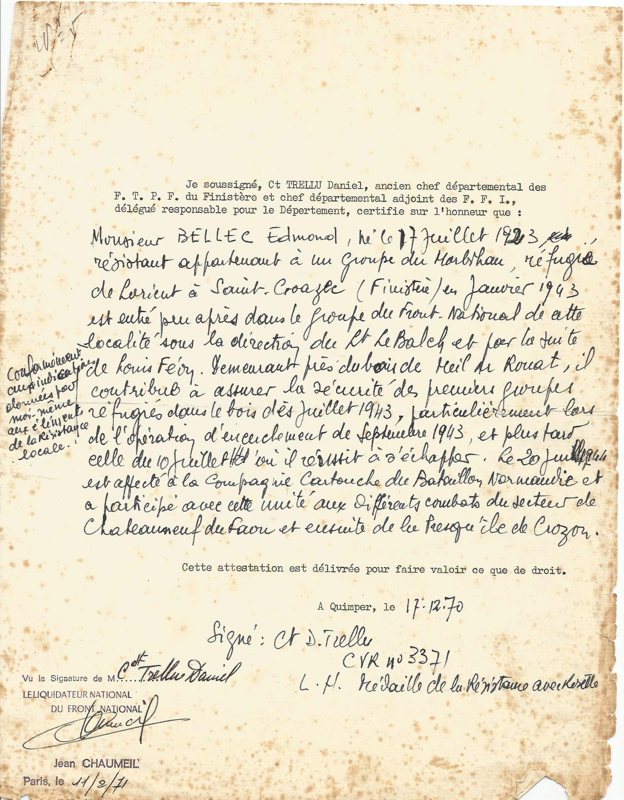 Je soussigné, Ct TRELLU Daniel, ancien chef départemental des
F. T. P. F. du Finistère et chef départemental adjoint des F. F. I.,
délégué responsable pour le Département, certifie sur l'honneur que :
Monsieur BELLEC Edmond, né le 17 Juillet 1923
résistant appartenant à un groupe du Morbihan, réfugié
de Lorient à Saint-Goazec (Finistère) en Janvier 1943
est entré peu après dans le groupe du Front National de cette
localité sous la direction du Lt Le Balch et par la suite
de Louis Févry. Demeurant près du bois de Meil Ar Rouat, il
contribué à assurer la sécurité des premiers groupes
réfugiés dans le bois dès Juillet 1943, particulièrement lors
de l'opération d'encerclement de Septembre 1943, et plus tard
celle du 10 Juillet d'où il réussit à s'échapper. Le 20 Juil 1944
est affecté à la Compagnie Cartouche du Bataillon Normandie et
a participé avec cette unité aux différents combats du secteur de
Chateauneuf du Faou et ensuite de la Presqu'île de Crozon.
Conformément
aux indications
données par
moi-même
aux éléments
de la Résistance
locale.
Cette attestation est délivrée pour faire valoir ce que de droit.
A Quimper, le 17.12.70
Signé : Ct D. Trellu
CVR no 3371
L. H. Médaille de la Résistance avec Rosette
Vu la Signature de M..... Cdt Trellu Daniel
LE LIQUIDATEUR NATIONAL
DU FRONT NATIONAL
Jean CHAUMEIL
Paris, le 11/2/71